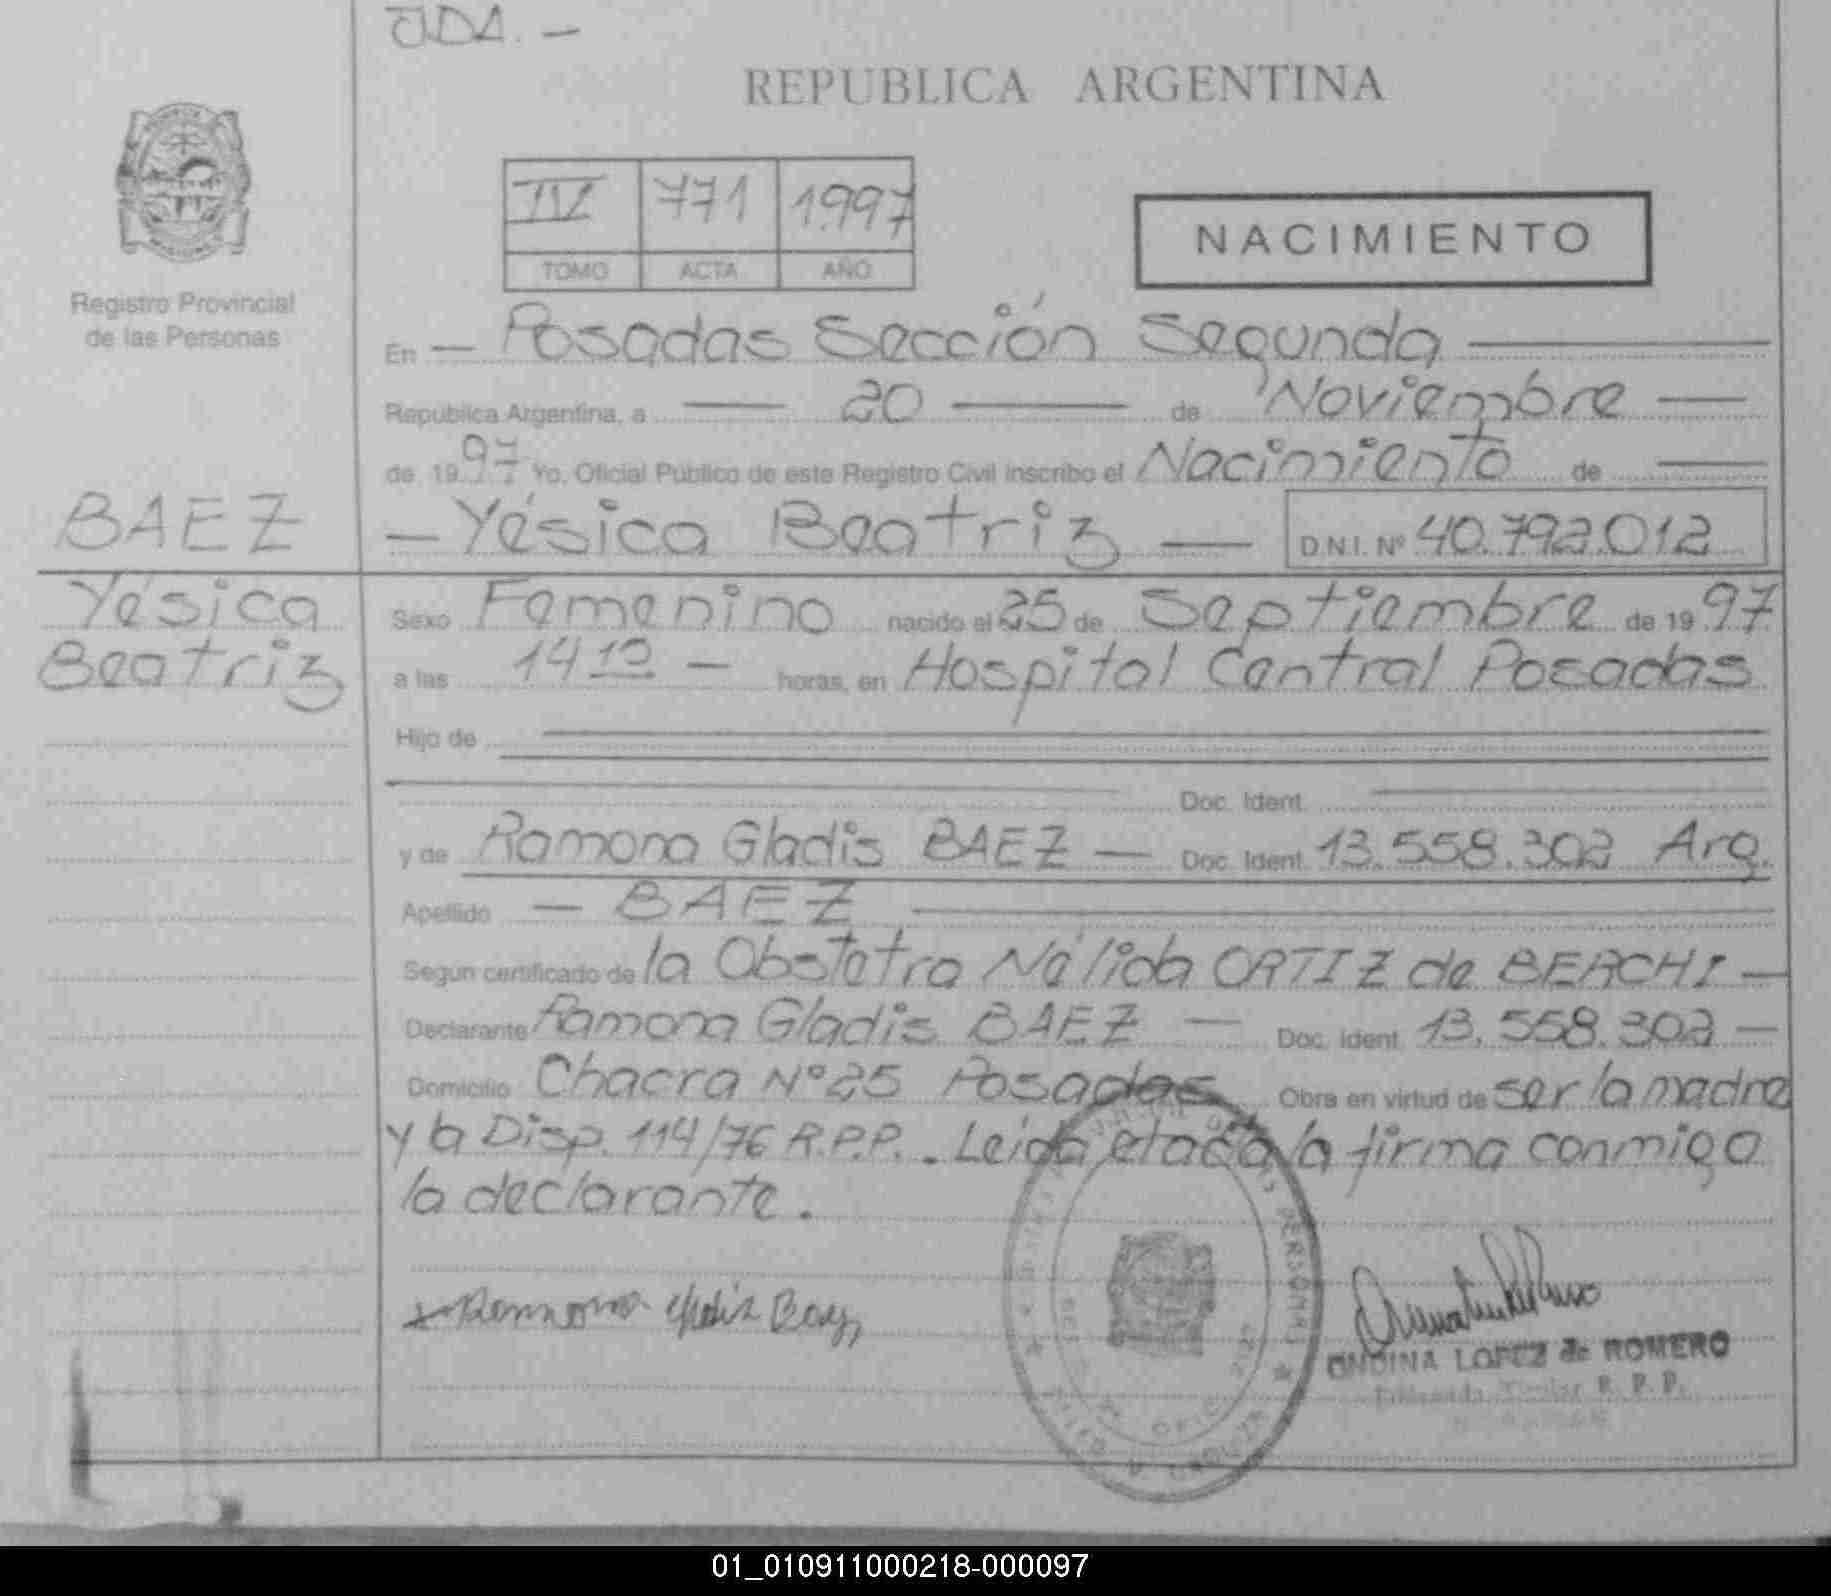 JDA. —
REPUBLICA ARGENTINA
IV 771 1.997
TOMO ACTA AÑO
NACIMIENTO
Registro Provincial
de las Personas
En — Posadas Sección Segunda —
Republica Argentina, a — 20 — de Noviembre —
de 19 97 Yo. Oficial Público de este Registro Civil inscribo el Nacimiento de —
BAEZ
— Yésica Beatriz — D.N.I. Nº 40.792.012
Yésica
Beatriz
Sexo Femenino nacido el 25 de Septiembre de 19 97
a las 14 10 — horas, en Hospital Central Posadas
Hijo de
Doc. Ident.
y de Ramona Gladis BAEZ — Doc. Ident. 13.558.302 Arg.
Apellido — BAEZ
Según certificado de la Obstetra Nélida ORTIZ de BERCHI —
Declarante Ramona Gladis BAEZ — Doc. Ident. 13.558.302 —
Domicilio Chacra Nº 25 Posadas Obra en virtud de ser la madre
y la Disp. 114/76 R.P.P. . Leida el acta la firma conmigo
la declarante.
Ramona Gladis Baez
ONDINA LOPEZ de ROMERO
R. P. P.
01_010911000218-000097